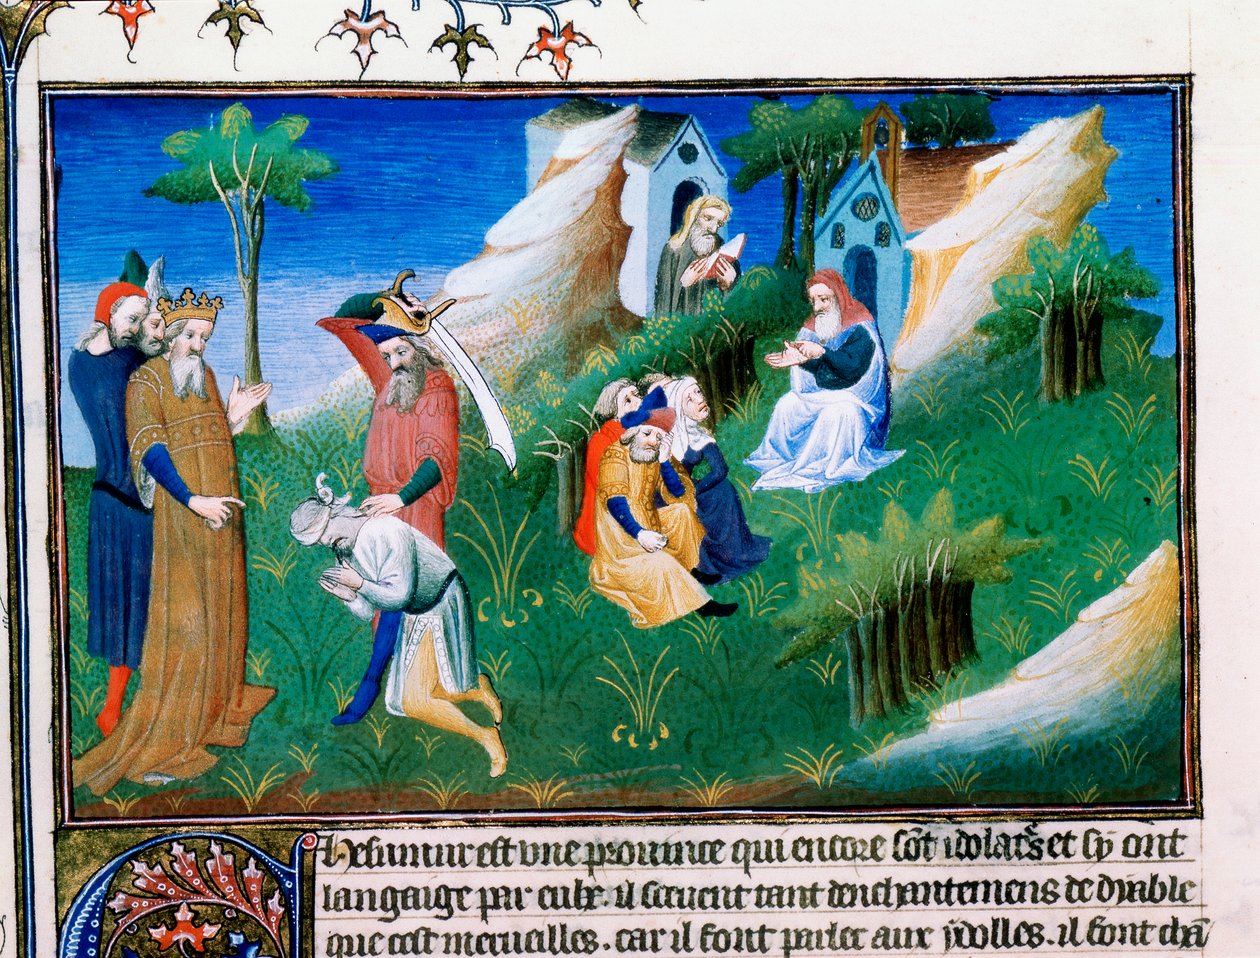 Chesimur est vne prouince qui encore sõt idolatr̃s et sy ont
langaige par eulx. il sceuent tant denchantemens de dyable
que cest merueilles. car il font parler aux ydolles. il font chã